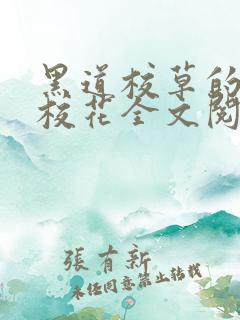 黑道校草的
校花全文閱
張有新
未經同意禁止轉載